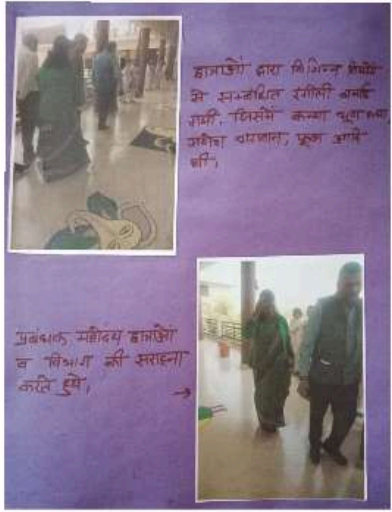 छात्राओं द्वारा विभिन्न विषयों
से सम्बंधित रंगोली बनाई
गयी, जिसमें कन्या भ्रूण हत्या,
फूल आदि
थी,
प्रबंधक महोदय छात्राओं
व विभाग की सराहना
करते हुये,